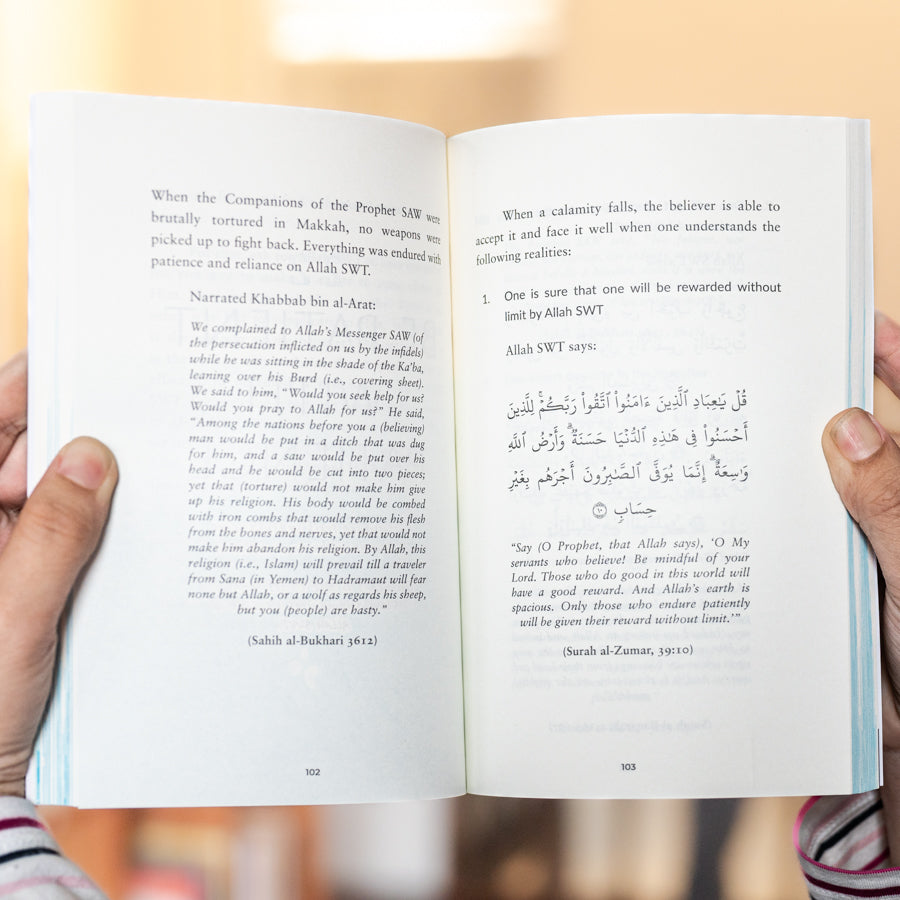 When the Companions of the Prophet SAW were
brutally tortured in Makkah, no weapons were
picked up to fight back. Everything was endured with
patience and reliance on Allah SWT.
Narrated Khabbab bin al-Arat:
We complained to Allah's Messenger SAW (of
the persecution inflicted on us by the infidels)
while he was sitting in the shade of the Ka'ba,
leaning over his Burd (i.e., covering sheet).
We said to him, "Would you seek help for us?
Would you pray to Allah for us?" He said,
"Among the nations before you a (believing)
man would be put in a ditch that was dug
for him, and a saw would be put over his
head and he would be cut into two pieces;
yet that (torture) would not make him give
up his religion. His body would be combed
with iron combs that would remove his flesh
from the bones and nerves, yet that would not
make him abandon his religion. By Allah, this
religion (i.e., Islam) will prevail till a traveler
from Sana (in Yemen) to Hadramaut will fear
none but Allah, or a wolf as regards his sheep,
but you (people) are hasty."
(Sahih al-Bukhari 3612)
102
When a calamity falls, the believer is able to
accept it and face it well when one understands the
following realities:
1. One is sure that one will be rewarded without
limit by Allah SWT
Allah SWT says:
قُلْ يَـٰعِبَادِ ٱلَّذِينَ ءَامَنُوا۟ ٱتَّقُوا۟ رَبَّكُمْ ۚ لِلَّذِينَ
أَحْسَنُوا۟ فِى هَـٰذِهِ ٱلدُّنْيَا حَسَنَةٌ ۗ وَأَرْضُ ٱللَّهِ
وَٰسِعَةٌ ۗ إِنَّمَا يُوَفَّى ٱلصَّـٰبِرُونَ أَجْرَهُم بِغَيْرِ
حِسَابٍ ١٠
"Say (O Prophet, that Allah says), 'O My
servants who believe! Be mindful of your
Lord. Those who do good in this world will
have a good reward. And Allah's earth is
spacious. Only those who endure patiently
will be given their reward without limit.'"
(Surah al-Zumar, 39:10)
103